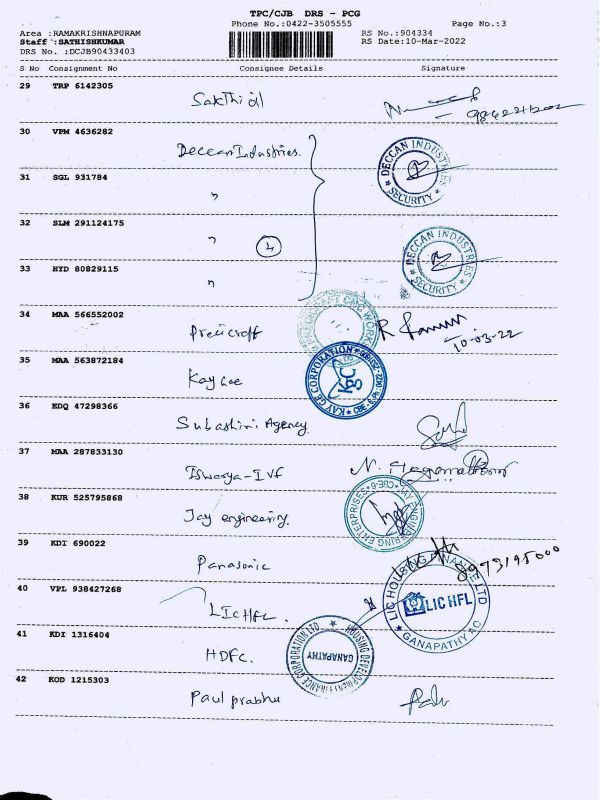 TPC/CJB DRS - PCG
Phone No.:0422-3505555 Page No.:3
Area :RAMAKRISHNAPURAM RS No.:904334
Staff :SATHISHKUMAR RS Date:10-Mar-2022
DRS No. :DCJB90433403
S No Consignment No Consignee Details Signature
29 TRP 6142305
Sakthi oil
30 VPM 4636282
Deccan Industries.
DECCAN INDUSTRIES
SECURITY
31 SGL 931784
"
32 SLM 291124175
"
4
DECCAN INDUSTRIES
SECURITY
33 HYD 80829115
"
34 MAA 566552002
Precicraft
10-03-22
35 MAA 563872184
Kay Gee
KAY GE CORPORATION
KGC
36 HDQ 47298366
Subashini Agency
37 MAA 287833130
Iswarya-IVF
38 KUR 525795868
Jay engineering.
JAY ENGINEERING ENTERPRISES
CBE-6
39 KDI 690022
Panasonic
8973195000
40 VPL 938427268
LICHFL.
LIC HOUSING FINANCE LTD
LIC HFL
GANAPATHY AO
41 KDI 1316404
HDFC.
HOUSING DEVELOPMENT FINANCE CORPORATION LTD
GANAPATHY
42 KOD 1215303
Paul prabhu